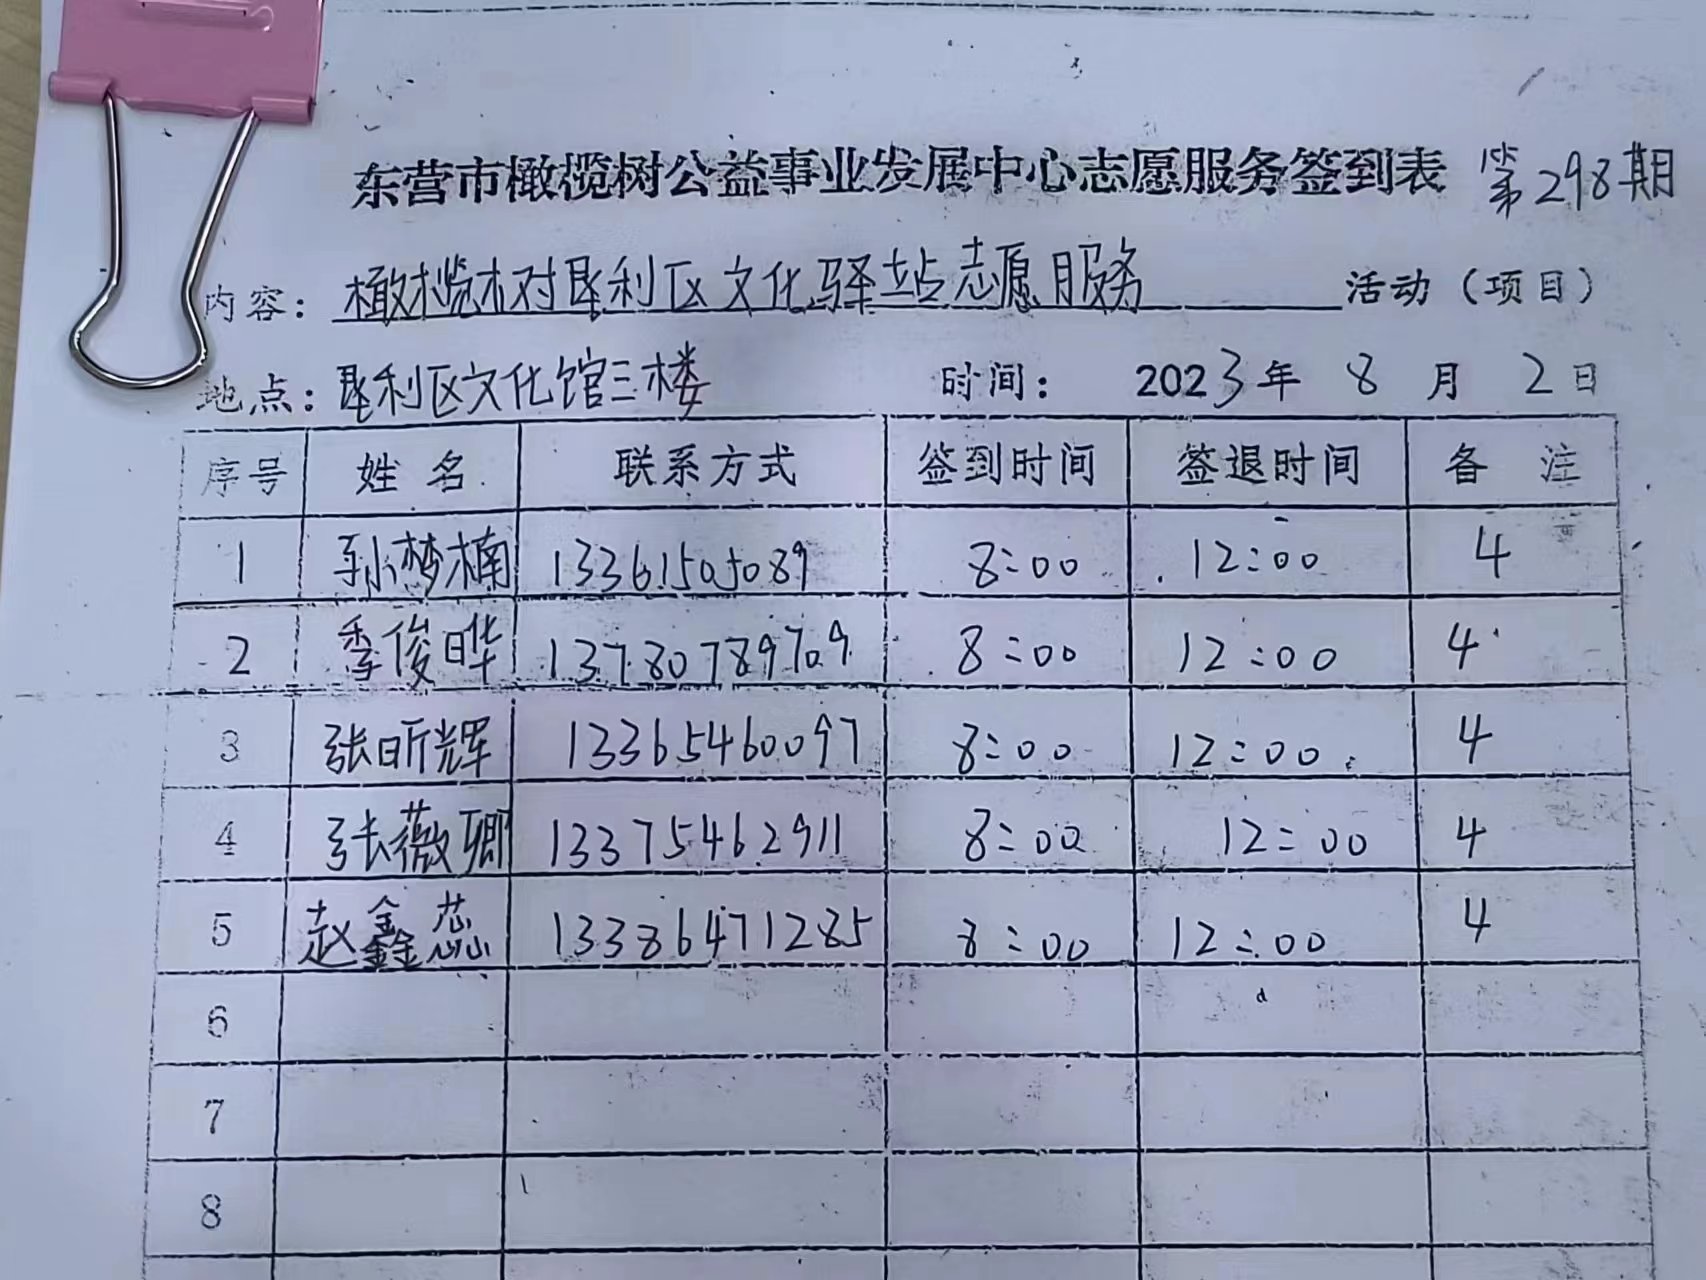 东营市橄榄树公益事业发展中心志愿服务签到表 第298期
内容：橄榄树垦利区文化驿站志愿服务 活动（项目）
地点：垦利区文化馆三楼 时间： 2023年 8 月 2日
序号 姓名 联系方式 签到时间 签退时间 备注
1 孙梦楠 13361505089 8:00 12:00 4
2 季俊晔 13780789709 8:00 12:00 4
3 张昕辉 13365460097 8:00 12:00 4
4 张薇卿 13375462911 8:00 12:00 4
5 赵鑫蕊 13386471285 8:00 12:00 4
6
7
8